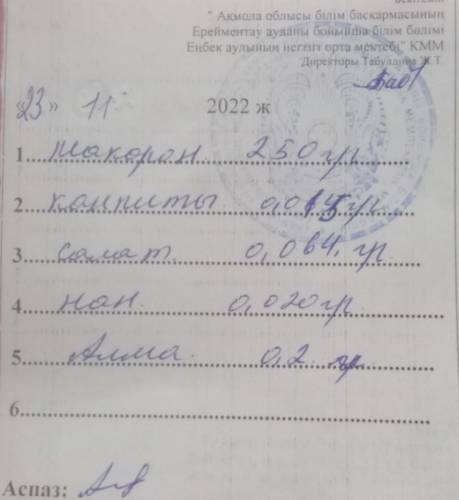 " Ақмола облысы білім басқармасының
Ерейментау ауданы бойынша білім бөлімі
Еңбек ауылының негізгі орта мектебі" КММ
Директоры Табулдина Ж.Т.
«23» 11 2022 ж
1....макорон.....250 гр.......
2....канпиты 0,015 гр.
3....салат. 0,064. гр
4....нан. 0,020 гр.
5....Алма. 0,2 гр.
6.............................
Аспаз: